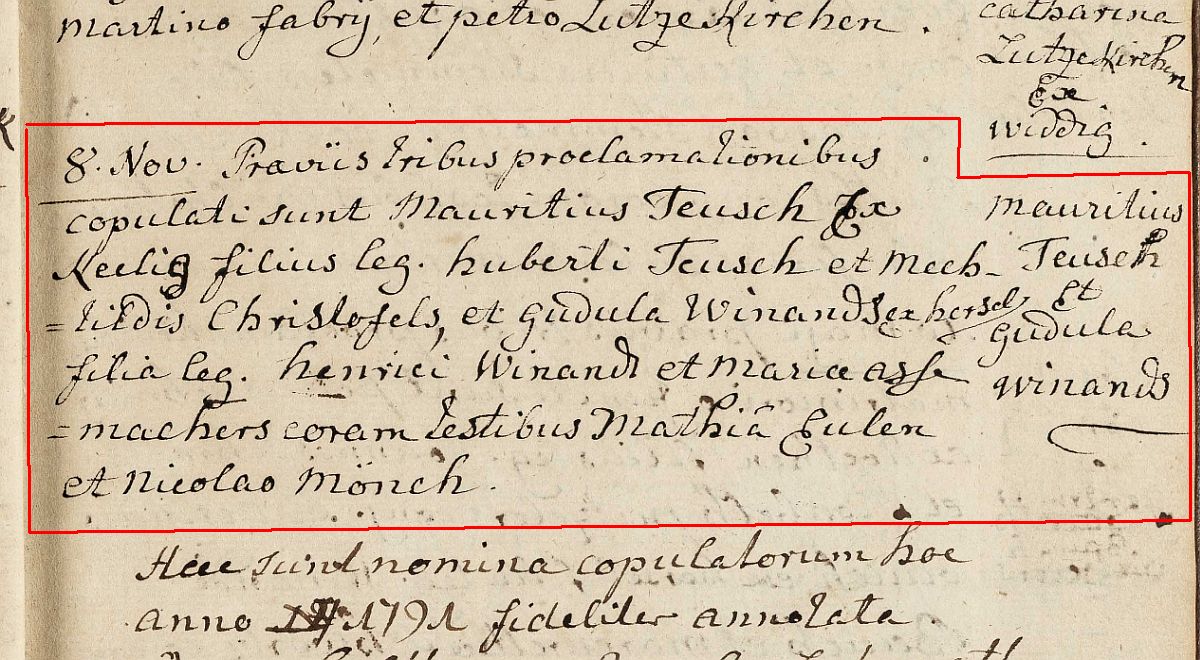 martino fabrÿ, et petro LutzeKirchen .
catharina
LutzeKirchen
Ex
widdig .
8. Nov. Præviis tribus proclamationibus
copulati sunt Mauritius Teusch Ex
Keelig filius leg. huberti Teusch et Mech-
=tildis Christofels, et gudula Winands ex hersel
filia leg. henrici Winands et mariæ asse
=machers coram testibus Mathiâ Eulen
et Nicolao Mönch.
mauritius
Teusch
Et
gudula
winands
Hæc sunt nomina copulatorum hoc
anno 1791 fideliter annotata